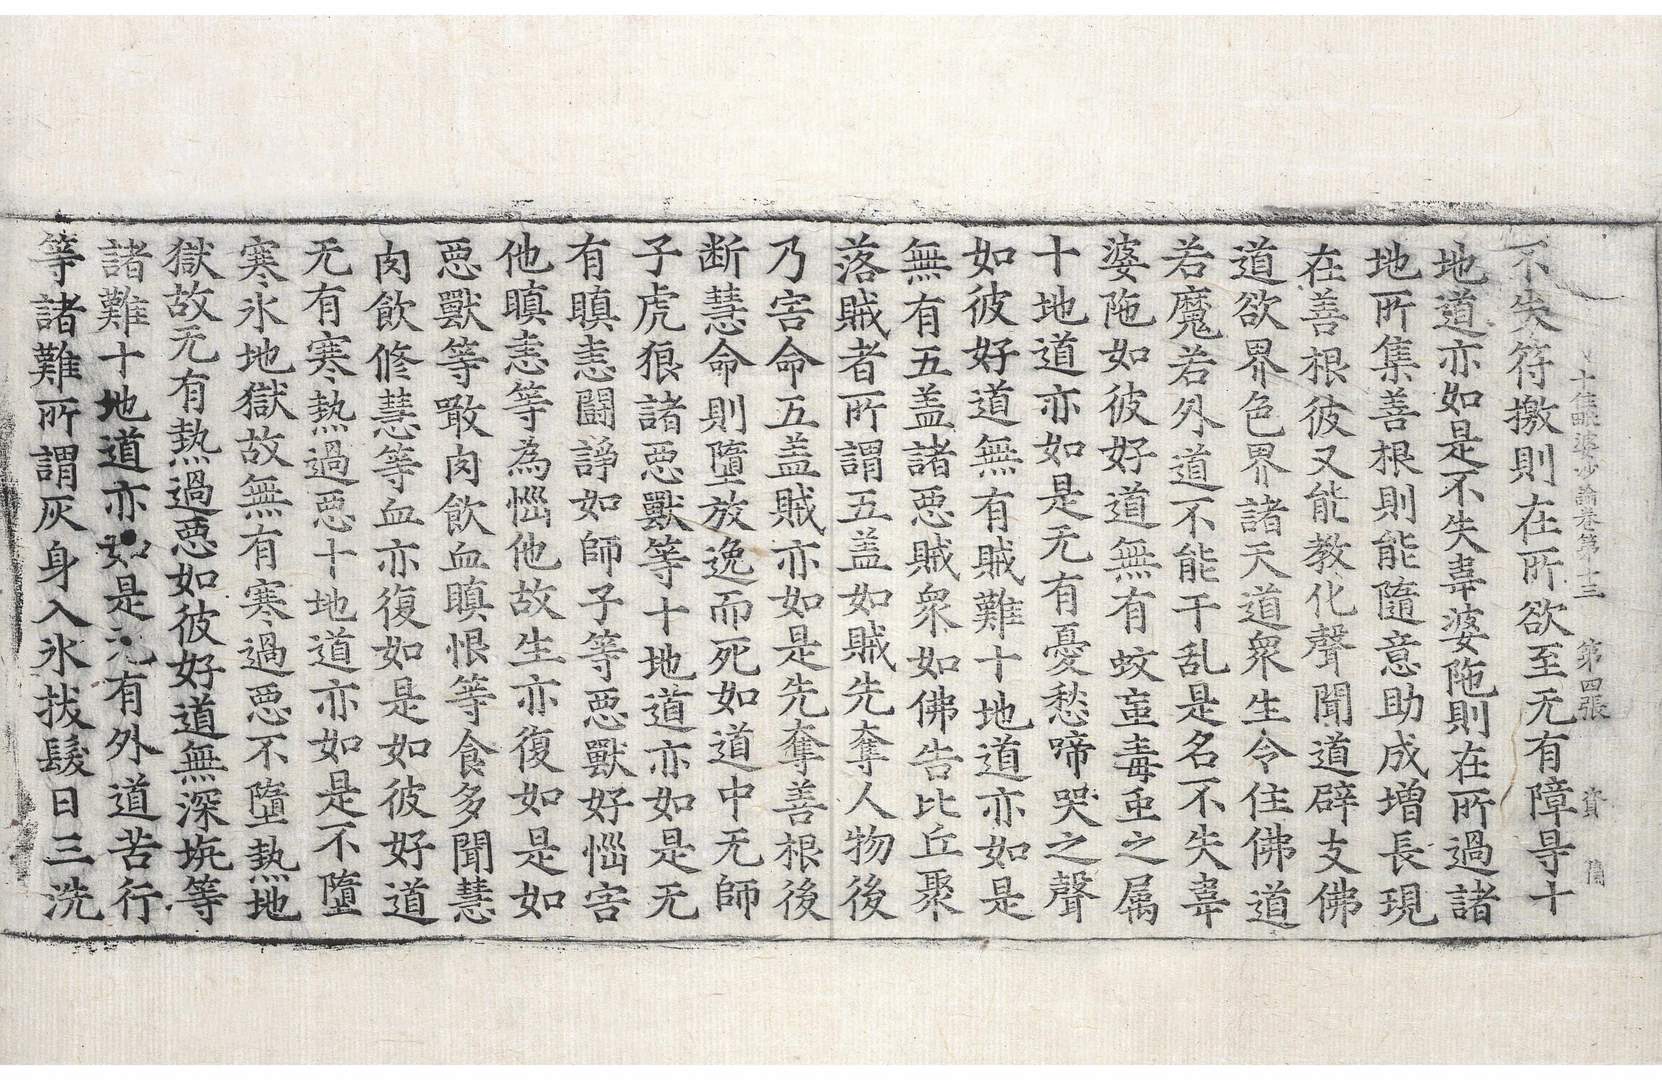 十住毗婆沙論卷第十三 第四張 資
不失符檄則在所欲至无有障㝵十
地道亦如是不失韋婆陁則在所過諸
地所集善根則能隨意助成增長現
在善根彼又能教化聲聞道辟支佛
道欲界色界諸天道衆生令住佛道
若魔若外道不能干乱是名不失韋
婆陁如彼好道無有蚊䖟毒虫之属
十地道亦如是无有憂愁啼哭之聲
如彼好道無有賊難十地道亦如是
無有五盖諸惡賊衆如佛告比丘聚
落賊者所謂五盖如賊先奪人物後
乃害命五盖賊亦如是先奪善根後
断慧命則墮放逸而死如道中无師
子虎狼諸惡獸等十地道亦如是无
有瞋恚鬪諍如師子等惡獸好惱害
他瞋恚等為惱他故生亦復如是如
惡獸等噉肉飲血瞋恨等食多聞慧
肉飲修慧等血亦復如是如彼好道
无有寒熱過惡十地道亦如是不墮
寒氷地獄故無有寒過惡不墮熱地
獄故无有熱過惡如彼好道無深坑等
諸難十地道亦如是无有外道苦行
等諸難所謂灰身入氷拔髮日三洗